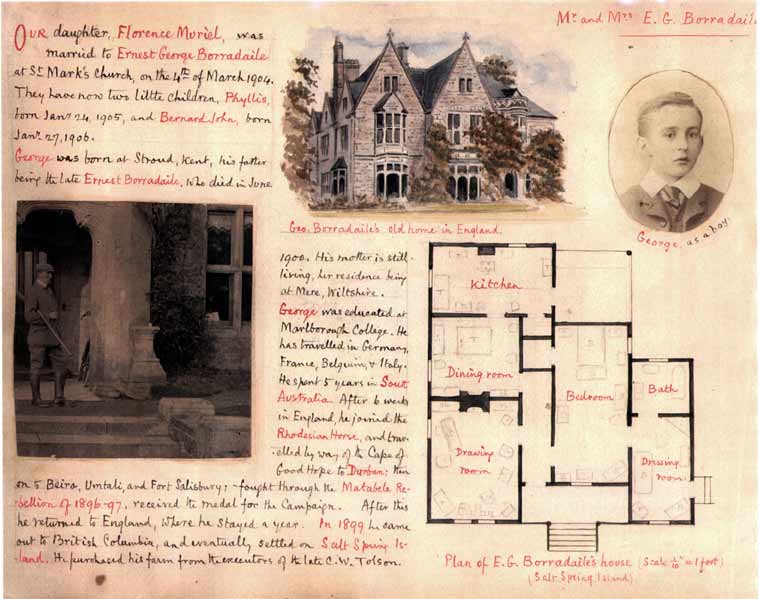 Mr and Mrs E. G. Borradaile
OUR daughter, Florence Muriel, was
married to Ernest George Borradaile
at St Mark's Church, on the 4th of March 1904.
They have now two little children, Phyllis,
born Jany 24, 1905, and Bernard John, born
Jany 27, 1906.
George was born at Stroud, Kent, his father
being the late Ernest Borradaile, who died in June
Geo. Borradaile's old home in England.
George, as a boy.
1900. His mother is still
living, her residence being
at Mere, Wiltshire.
George was educated at
Marlborough College. He
has travelled in Germany,
France, Belgium, & Italy.
He spent 5 years in South
Australia. After 6 weeks
in England, he joined the
Rhodesian Horse, and trav-
elled by way of the Cape of
Good Hope to Durban; then
on to Beira, Umtali, and Fort Salisbury; fought through the Matabele Re-
bellion of 1896-97, received the medal for the Campaign. After this
he returned to England, where he stayed a year. In 1899 he came
out to British Columbia, and eventually settled on Salt Spring Is-
land. He purchased his farm from the executors of the late C. W. Tolson.
Kitchen
Dining room
Bedroom
Bath
Drawing
room
Dressing
room
Plan of E. G. Borradaile's house (Scale 1/10" = 1 foot)
(Salt Spring Island)